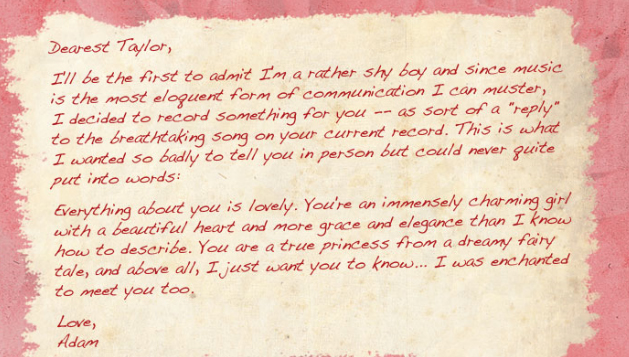 Dearest Taylor,
I'll be the first to admit I'm a rather shy boy and since music
is the most eloquent form of communication I can muster,
I decided to record something for you -- as sort of a "reply"
to the breathtaking song on your current record. This is what
I wanted so badly to tell you in person but could never quite
put into words:
Everything about you is lovely. You're an immensely charming girl
with a beautiful heart and more grace and elegance than I know
how to describe. You are a true princess from a dreamy fairy
tale, and above all, I just want you to know... I was enchanted
to meet you too.
Love,
Adam